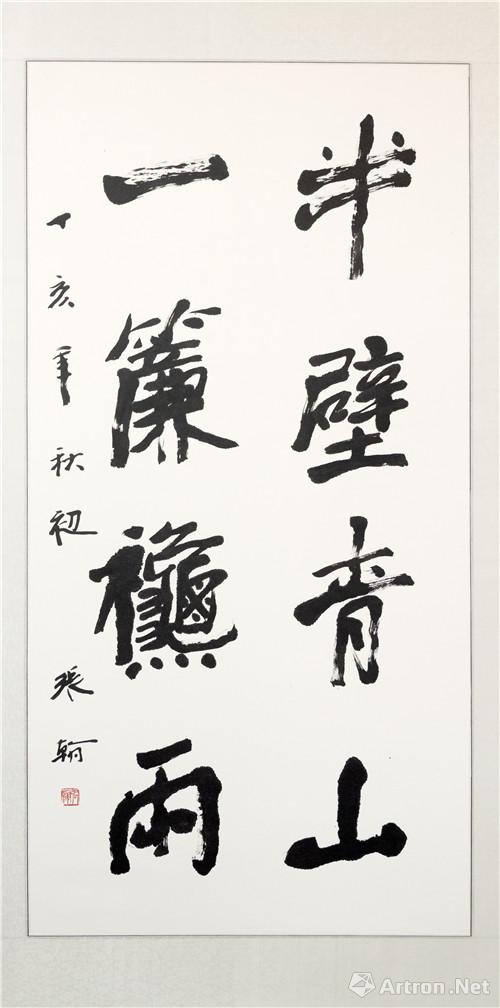 半壁青山
一簾龝雨
丁亥年秋初 張翰
Artron.Net